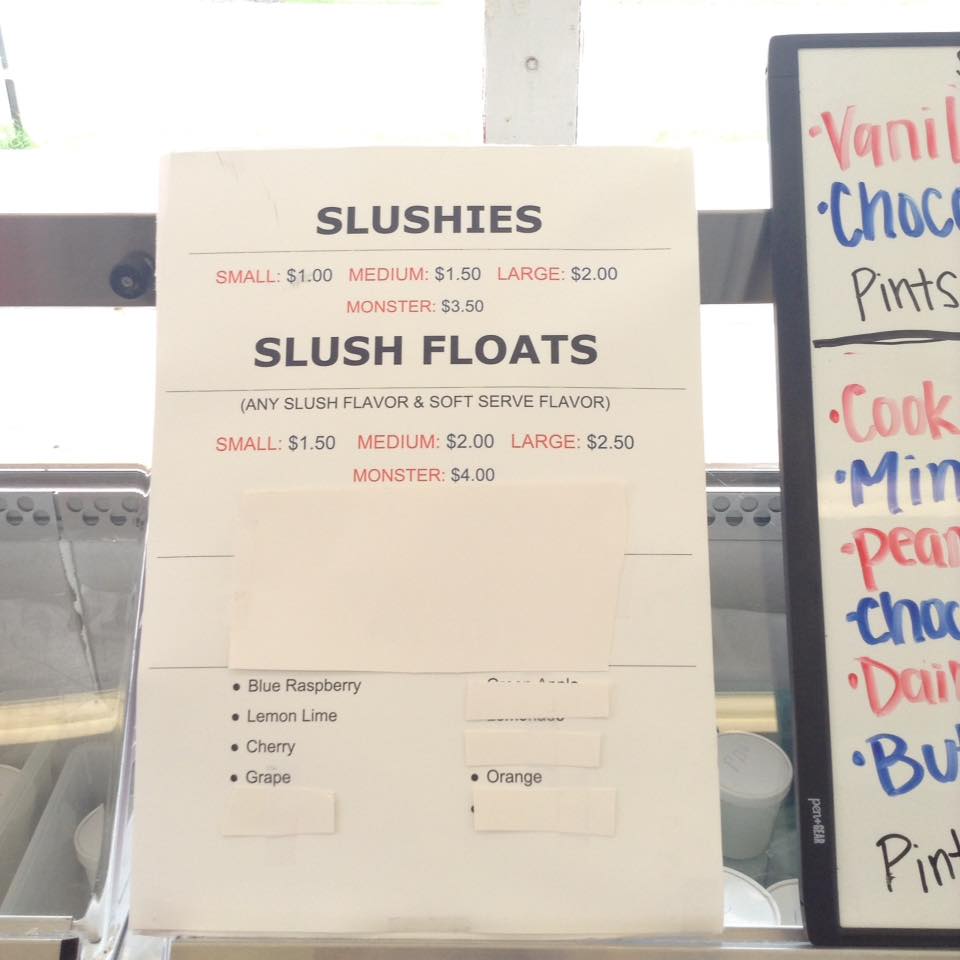 SLUSHIES
SMALL: $1.00 MEDIUM: $1.50 LARGE: $2.00
MONSTER: $3.50
SLUSH FLOATS
(ANY SLUSH FLAVOR & SOFT SERVE FLAVOR)
SMALL: $1.50 MEDIUM: $2.00 LARGE: $2.50
MONSTER: $4.00
• Blue Raspberry
• Lemon Lime
• Cherry
• Grape
• Orange
•Vanil
•Choco
Pints
•Cook
•Min
•pean
•choc
•Dair
•Bu
Pint
pen+GEAR